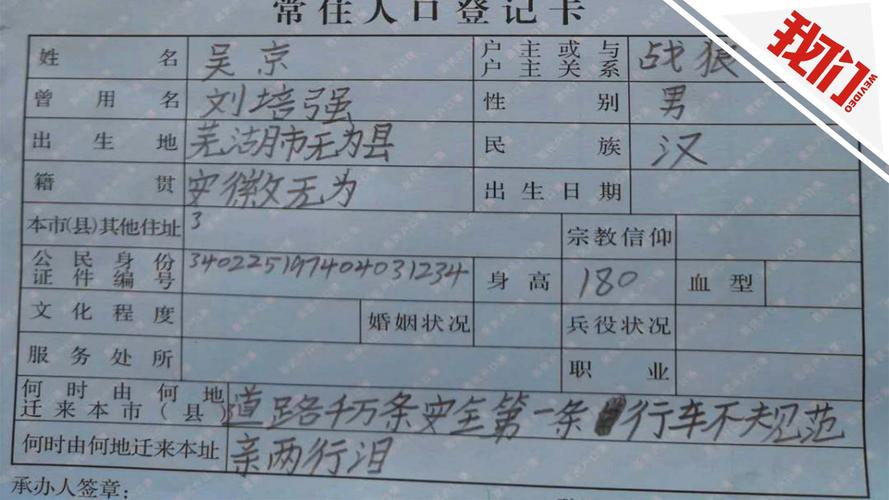 常住人口登记卡
姓名 吴京 户主或与户主关系 战狼
曾用名 刘培强 性别 男
出生地 芜湖市无为县 民族 汉
籍贯 安徽无为 出生日期
本市(县)其他住址 3 宗教信仰
公民身份证件编号 340225197404031234 身高 180 血型
文化程度 婚姻状况 兵役状况
服务处所 职业
何时由何地迁来本市(县) 道路千万条安全第一条 行车不规范
何时由何地迁来本址 亲两行泪
承办人签章:
我们
WEVIDEO